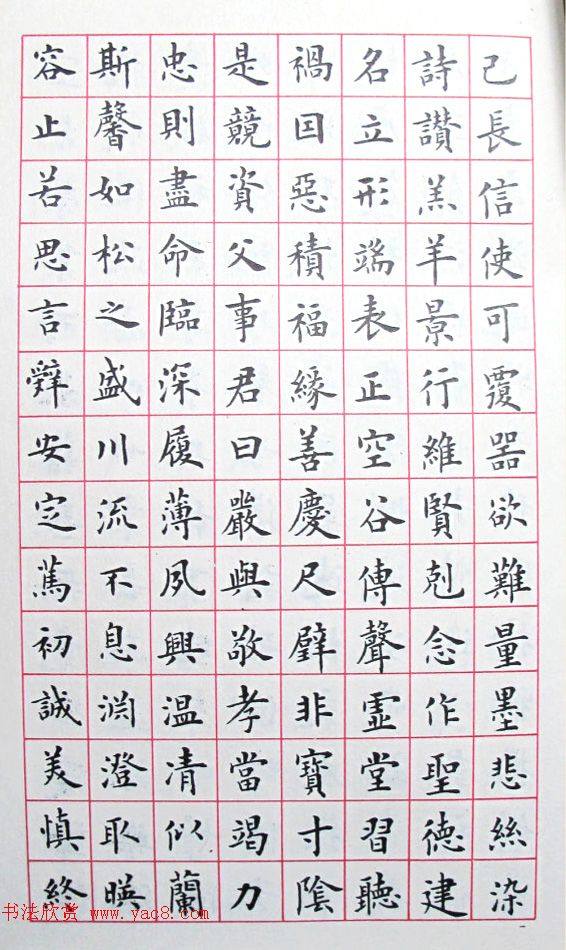 己長信使可覆器欲難量墨悲絲染
詩讚羔羊景行維賢剋念作聖德建
名立形端表正空谷傳聲虛堂習聽
禍因惡積福緣善慶尺璧非寶寸陰
是競資父事君曰嚴與敬孝當竭力
忠則盡命臨深履薄夙興温清似蘭
斯馨如松之盛川流不息渊澄取暎
容止若思言辭安定篤初誠美慎終
书法欣赏 www.yac8.com